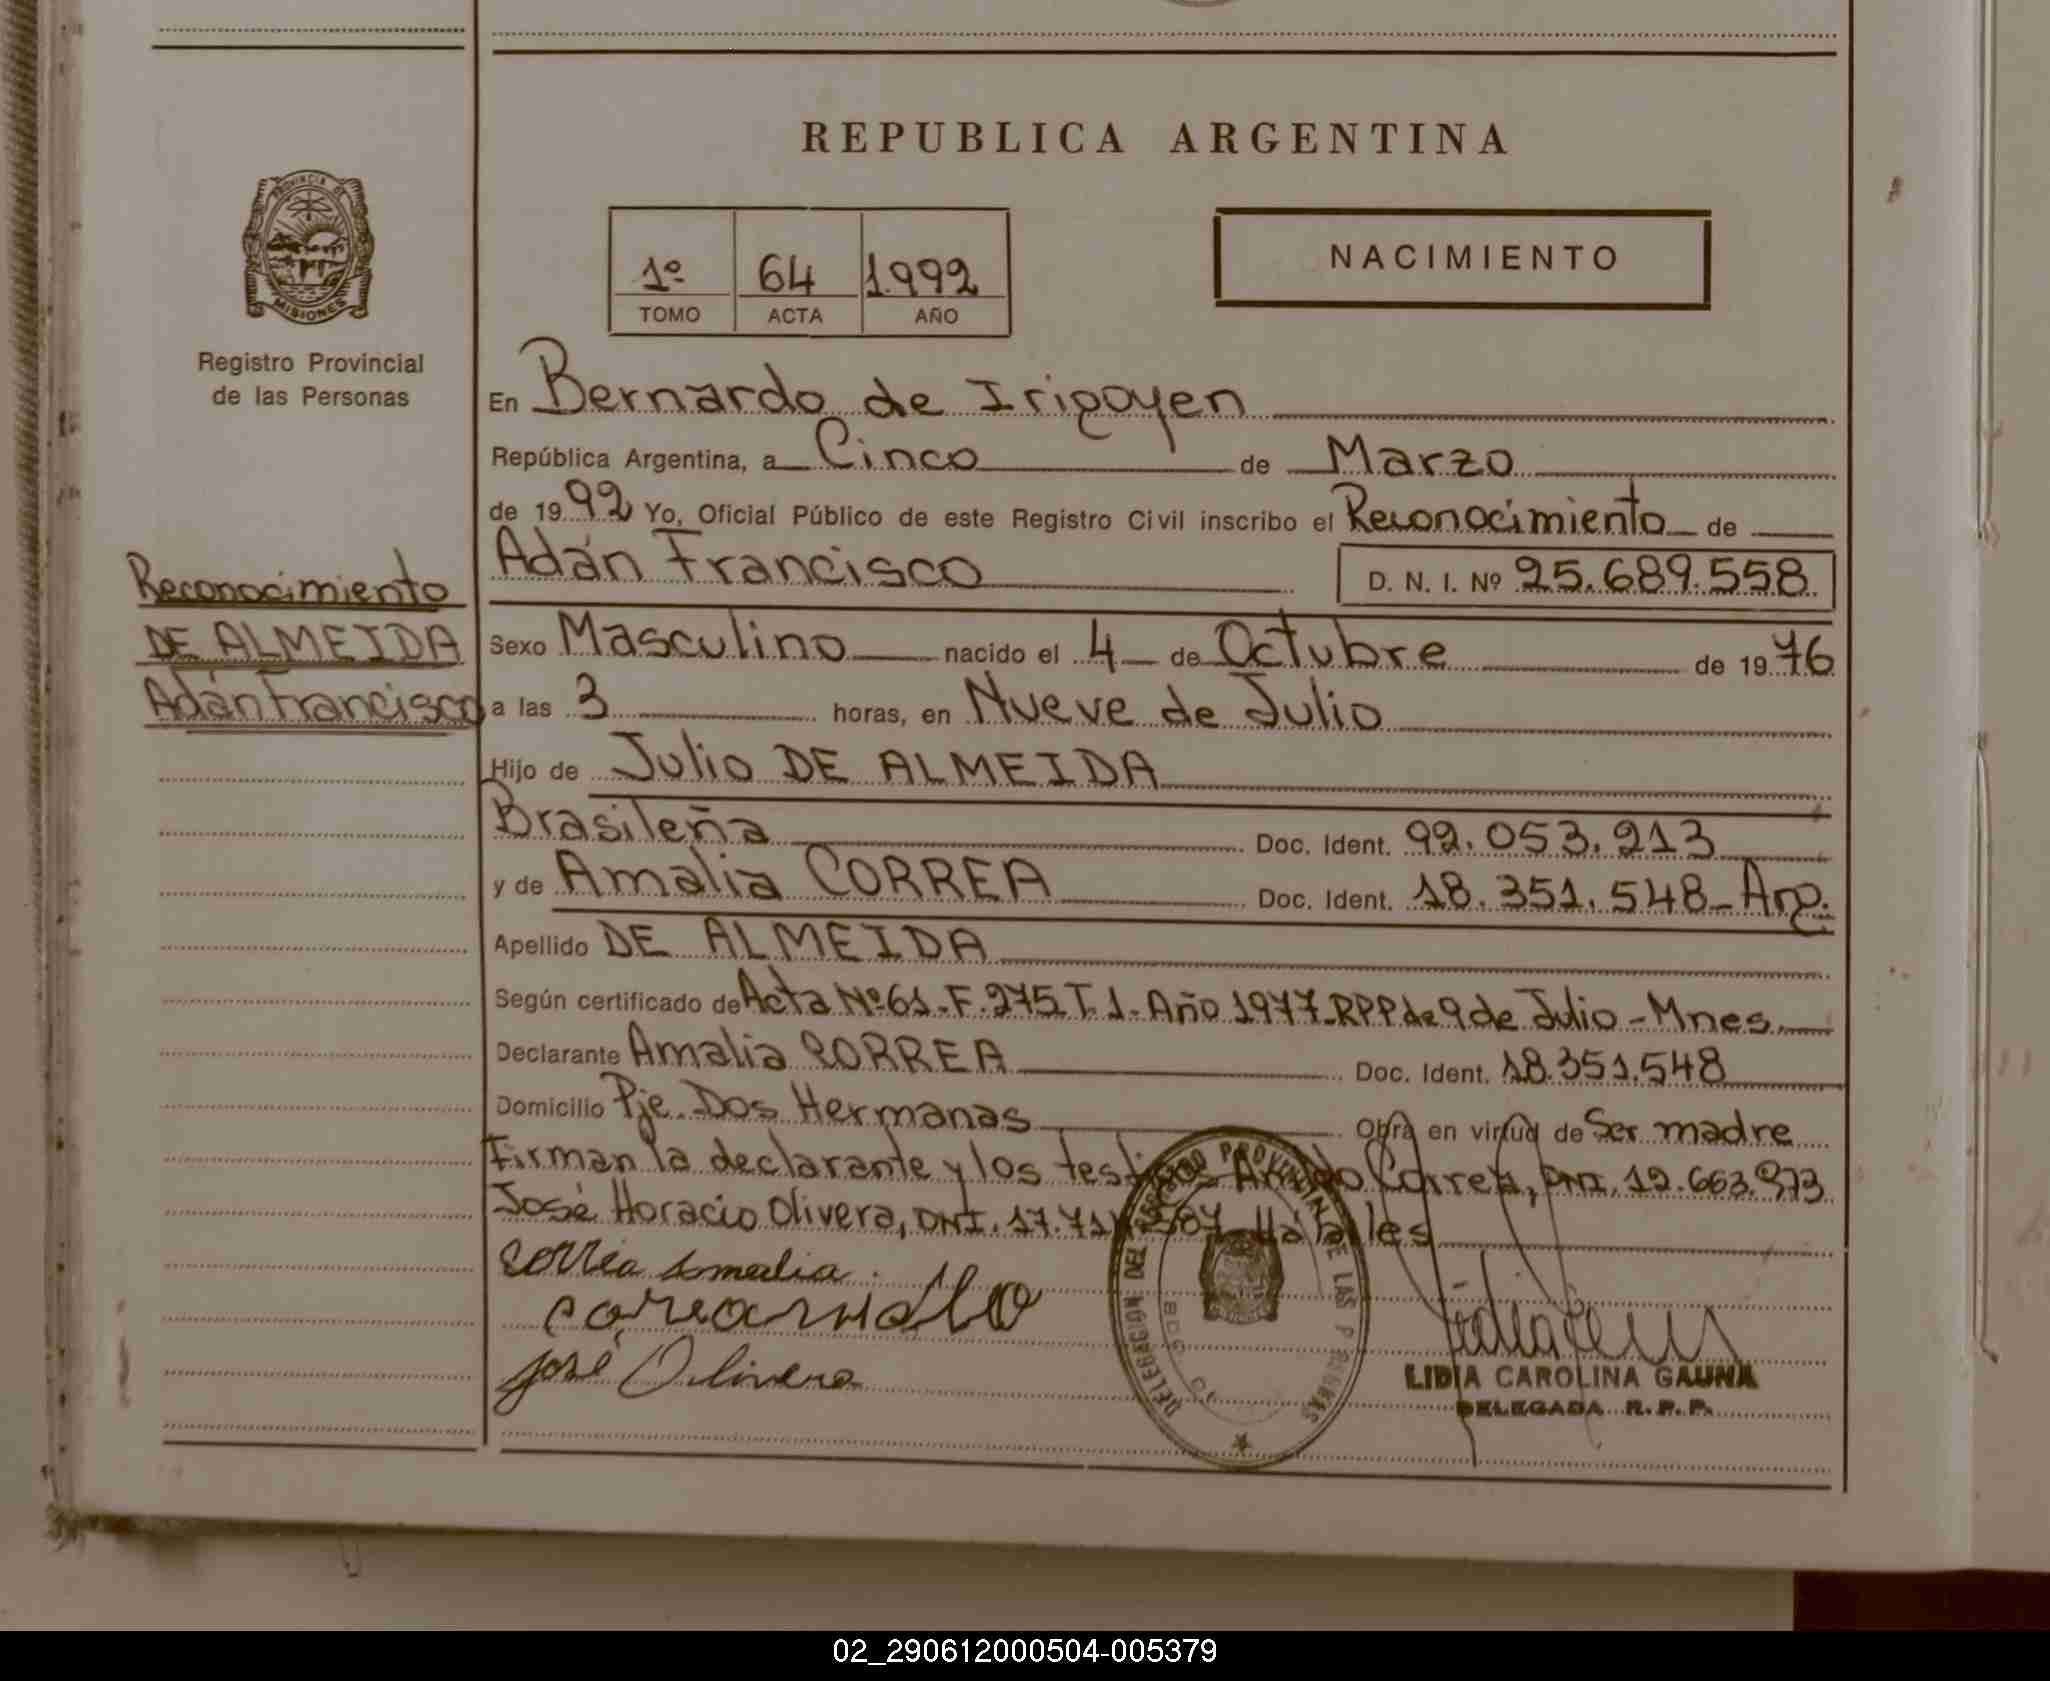 REPUBLICA ARGENTINA
PROVINCIA DE
MISIONES
Registro Provincial
de las Personas
1º 64 1992
TOMO ACTA AÑO
NACIMIENTO
En Bernardo de Irigoyen
República Argentina, a Cinco de Marzo
de 1992 Yo, Oficial Público de este Registro Civil inscribo el Reconocimiento de
Adán Francisco D. N. I. Nº 25.689.558
Reconocimiento
DE ALMEIDA
Adán Francisco
Sexo Masculino nacido el 4 de Octubre de 1976
a las 3 horas, en Nueve de Julio
Hijo de Julio DE ALMEIDA
Brasileña Doc. Ident. 92.053.213
y de Amalia CORREA Doc. Ident. 18.351.548 - Arg.
Apellido DE ALMEIDA
Según certificado de Acta Nº 61. F. 275. T. 1. Año 1977. RPP de 9 de Julio - Mnes.
Declarante Amalia CORREA Doc. Ident. 18.351.548
Domicilio Pje. Dos Hermanas Obra en virtud de Ser madre
Firman la declarante y los testigos Correa, DNI. 12.663.973
José Horacio Olivera, DNI. 17.
Correa Amalia
José Olivera
DELEGACIÓN DEL REGISTRO PROVINCIAL DE LAS PERSONAS
LIDIA CAROLINA GAUNA
DELEGADA R. P. P.
02_290612000504-005379